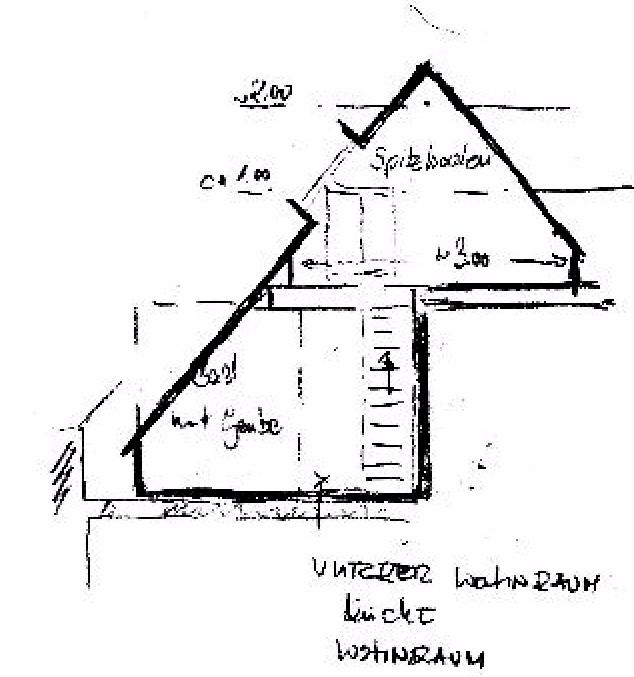 ~2.00
ca 1.00
Spitzboden
~3.00
Bad
mit Gaube
UNTERER WOHNRAUM
WOHNRAUM